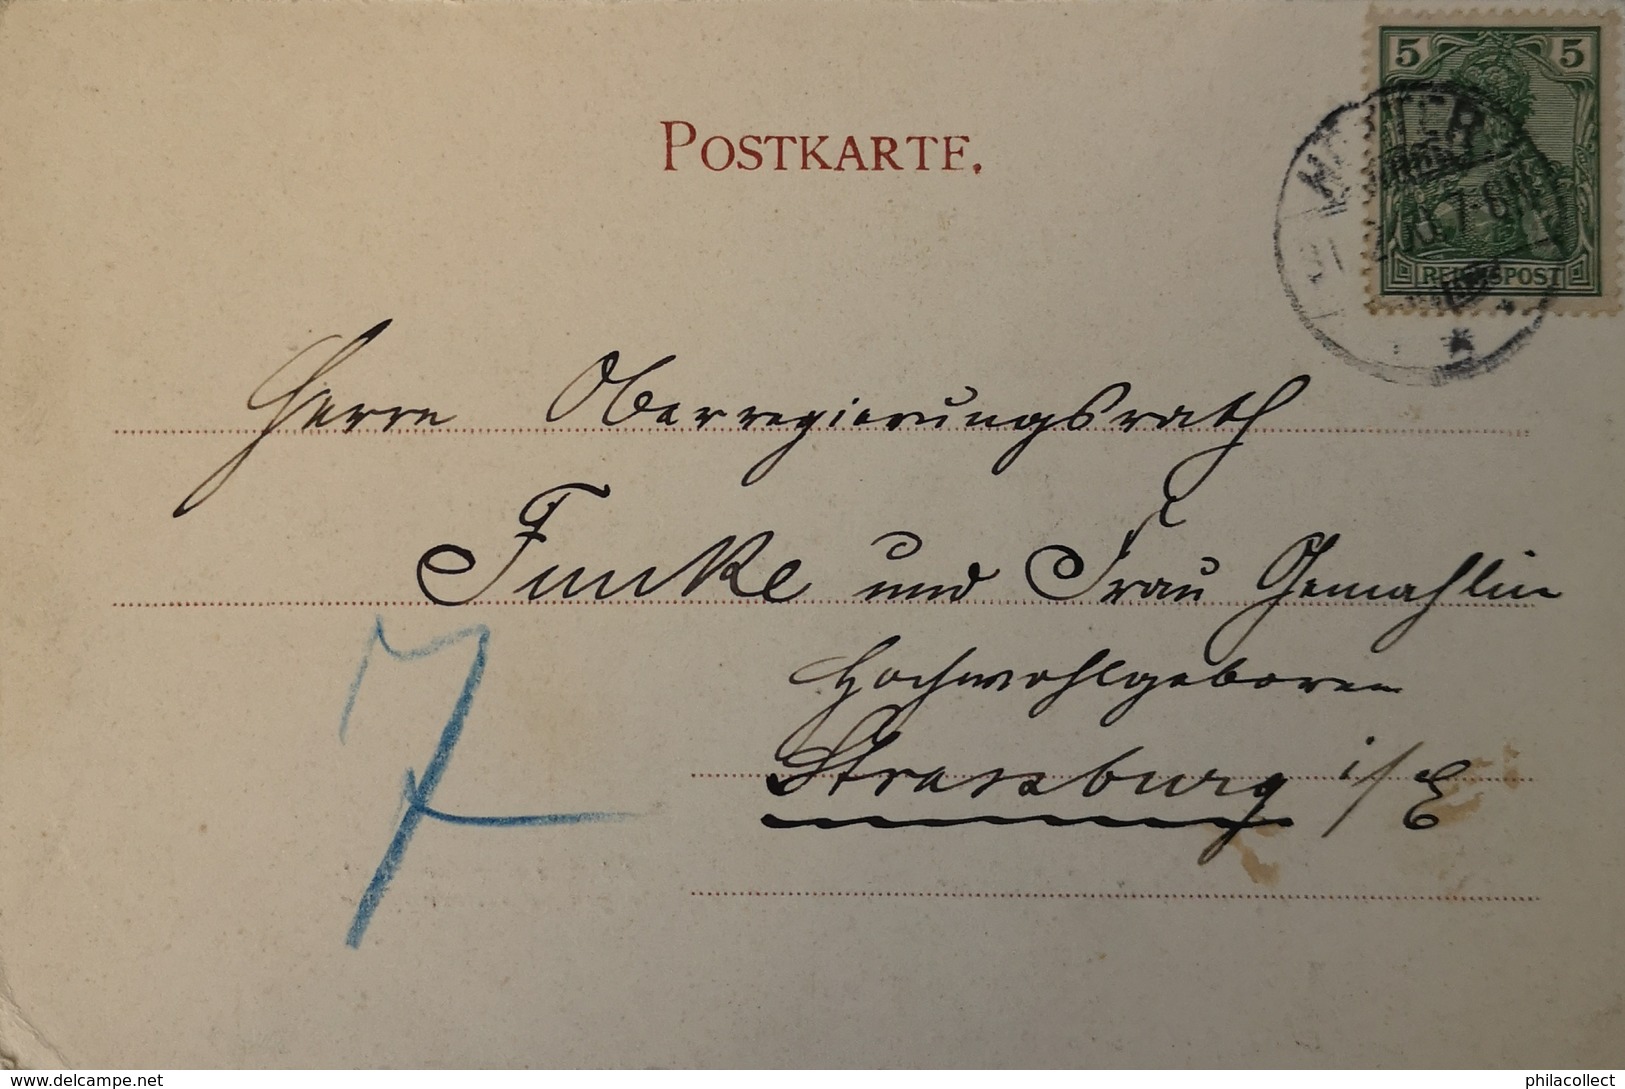 POSTKARTE.
5 5
REICHSPOST
Herrn Oberregierungsrath
Funke und Frau Gemahlin
Hochwohlgeboren
Strassburg i/E
7
delcampe.net
philacollect